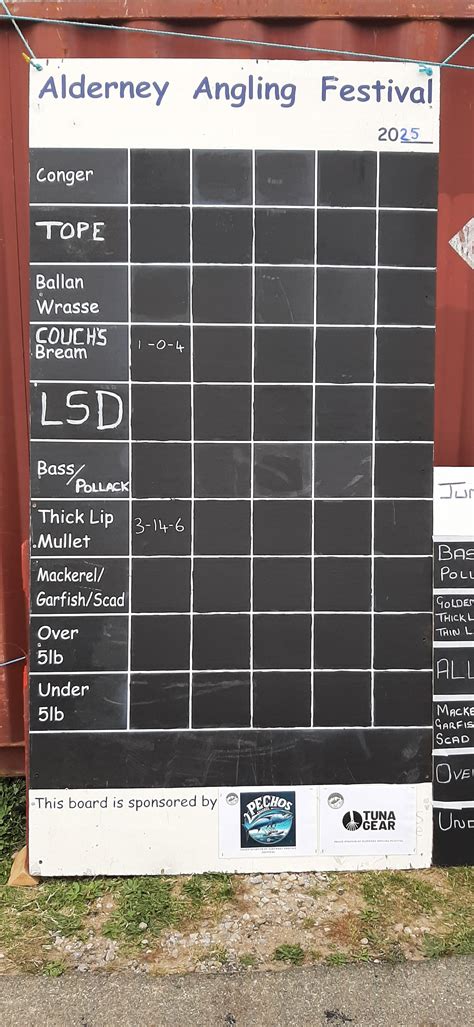 Alderney Angling Festival
2025
Conger
TOPE
Ballan
Wrasse
COUCH'S
Bream
1-0-4
LSD
Bass/
POLLACK
Thick Lip
Mullet
3-14-6
Mackerel/
Garfish/Scad
Over
5lb
Under
5lb
This board is sponsored by
PECHOS
TUNA
GEAR
JUN
BAS
POLL
GOLDEN
THICK L
THIN L
ALL
MACKE
GARFIS
SCAD
OVE
UND